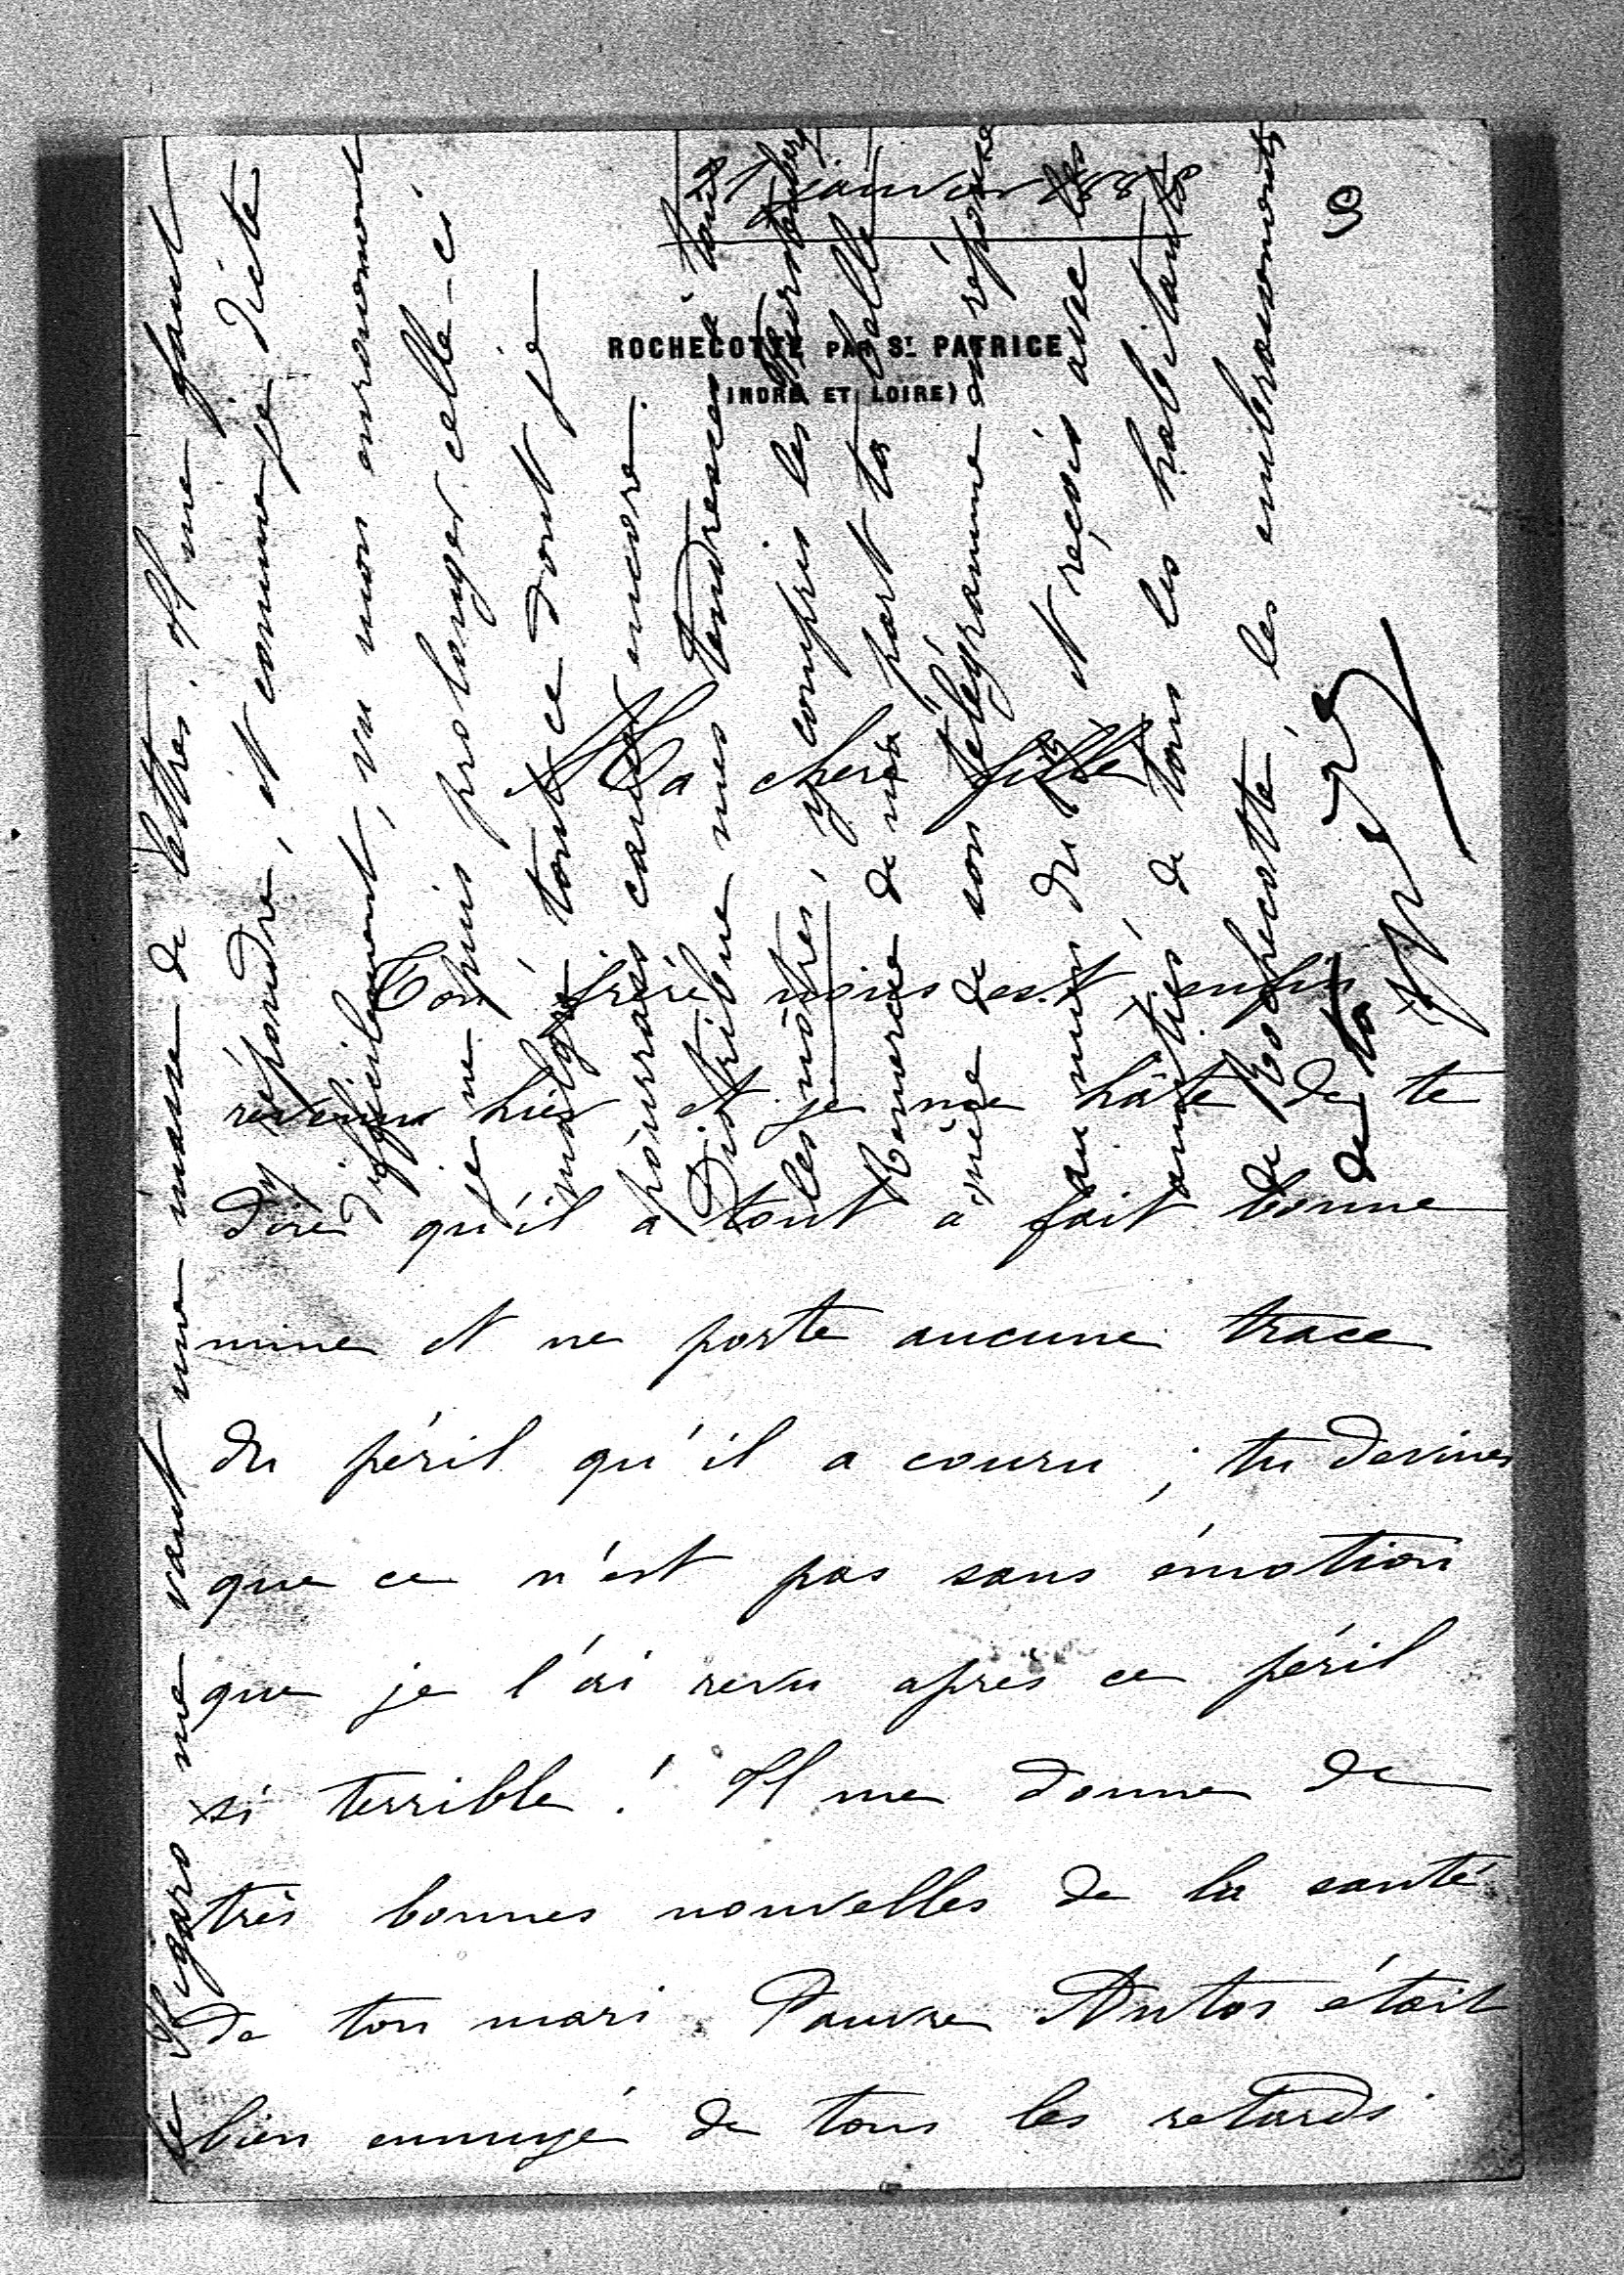 21 janvier 188
9
ROCHECOTTE PAR ST. PATRICE
(INDRE ET LOIRE)
Ma chère fille
Ton frère nous est enfin
revenu hier et je me hâte de te
dire qu'il a tout à fait bonne
mine et ne porte aucune trace
du péril qu'il a couru ; tu devines
que ce n'est pas sans émotion
que je l'ai revu après ce péril
si terrible ! Il me donne de
très bonnes nouvelles de la santé
de ton mari. Pauvre Antos était
bien ennuyé de tous les retards
le Figaro me vaut une masse de lettres. Il me faut
y répondre, et comme je dicte
difficilement, vu mon enrouement
je ne puis prolonger celle-ci
malgré tout ce dont je
pourrais causer encore.
Distribue mes tendresses à tous
les nôtres, y compris les
Remercie de ma part ta belle
mère de son télégramme en réponse
au mien du et reçois avec les
amitiés de tous les habitants
de Rochecotte, les embrassements
de ta